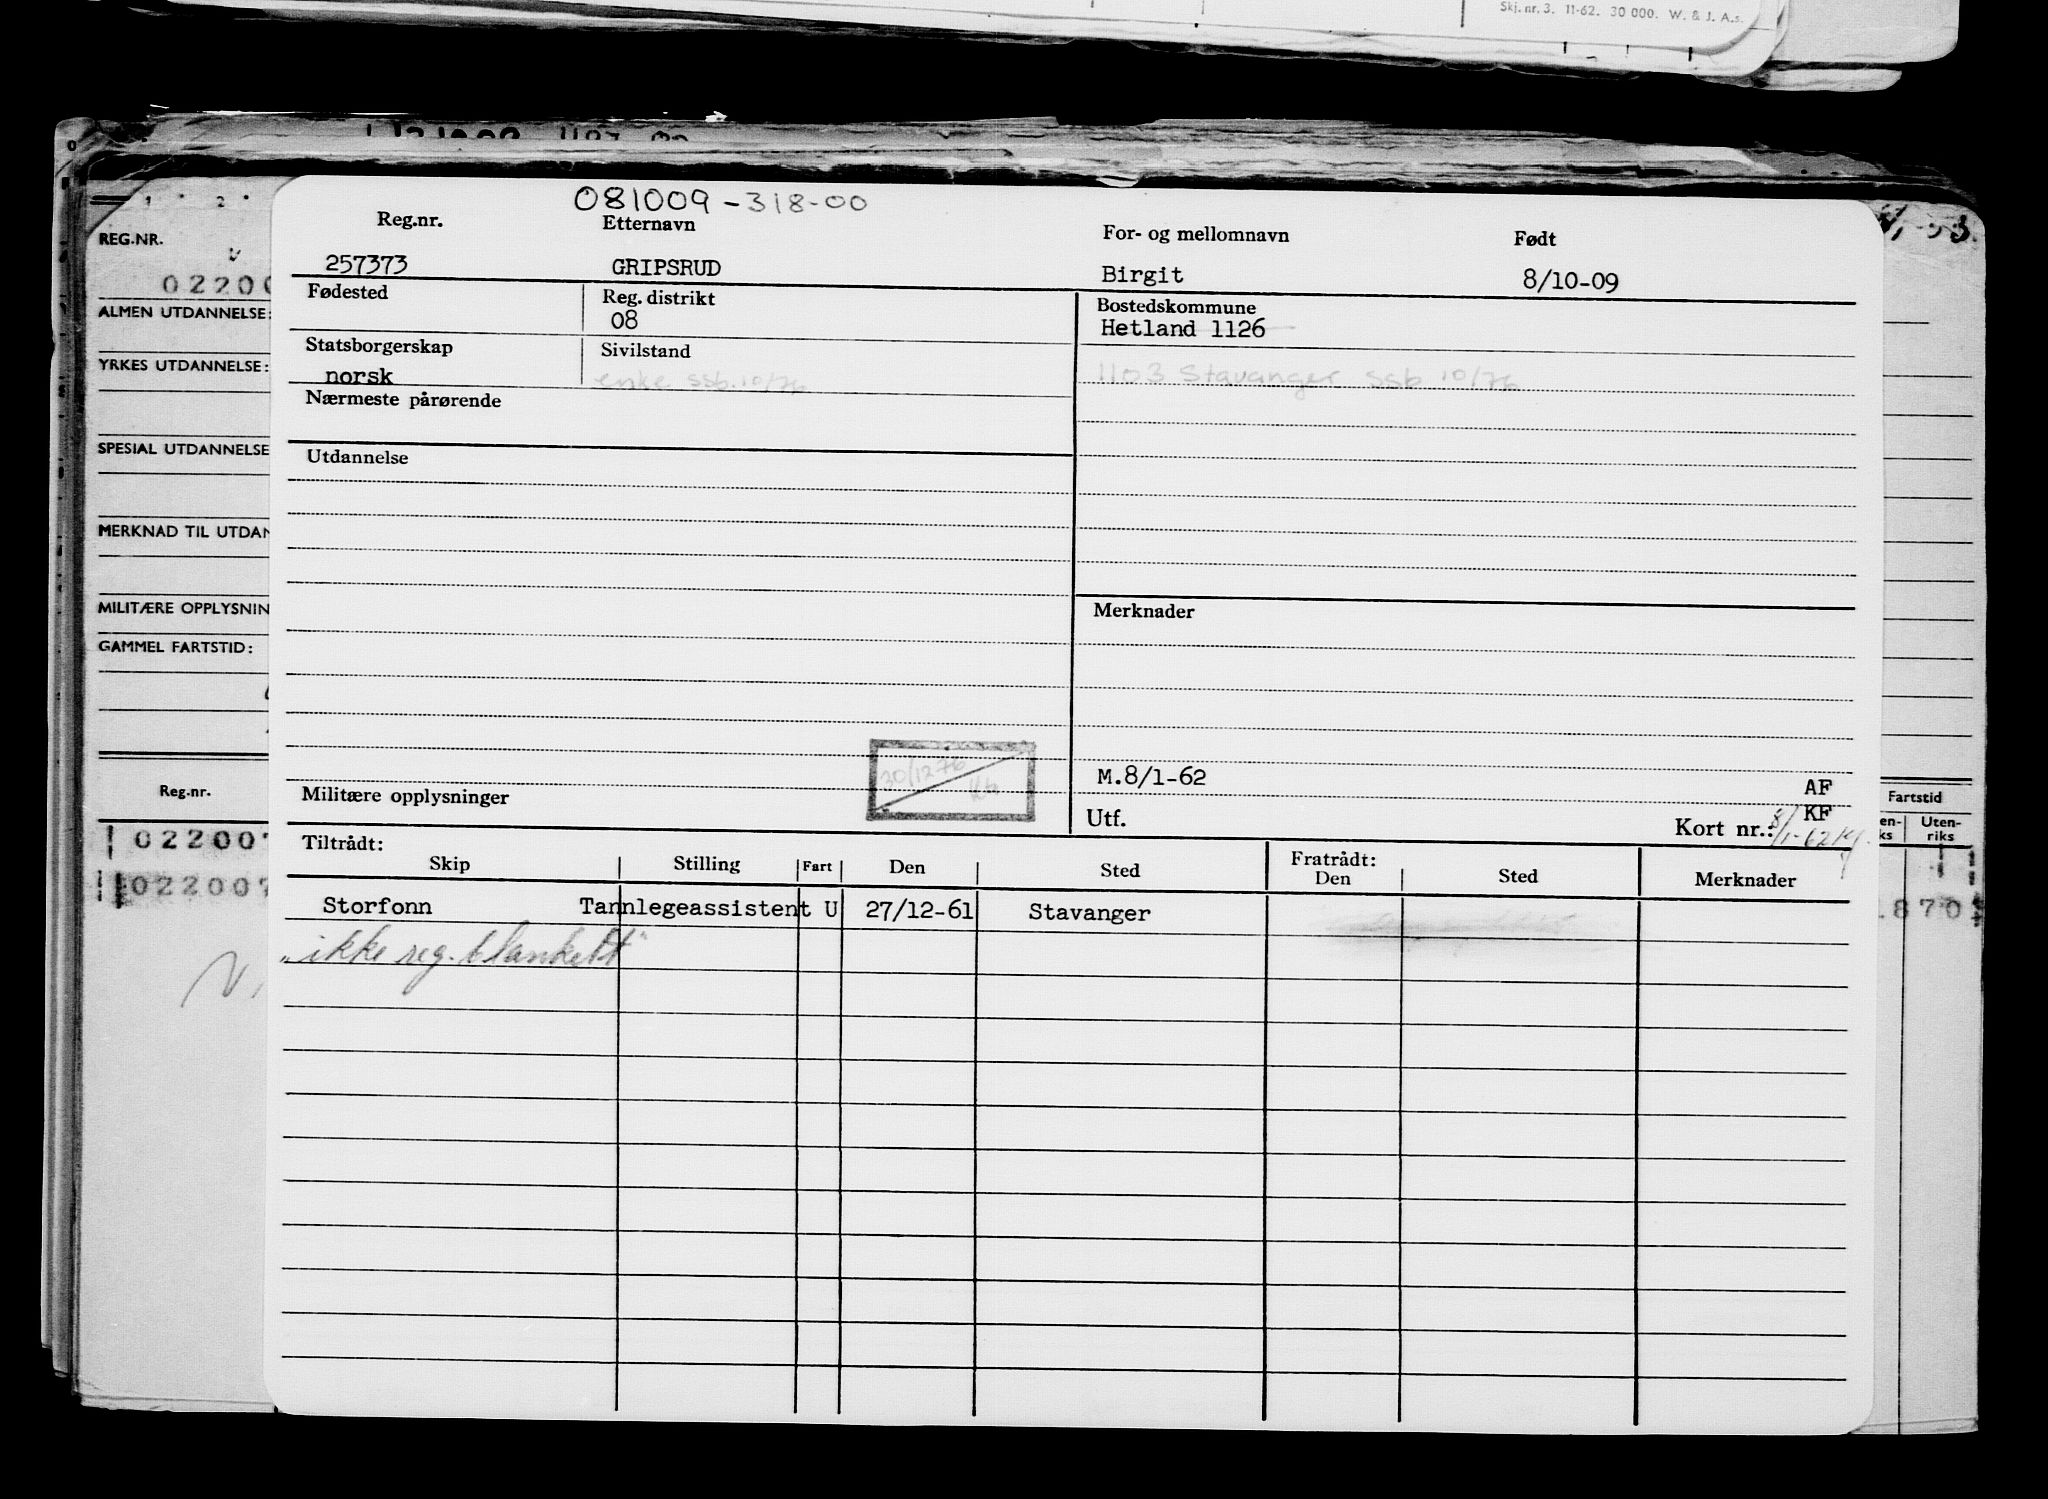 Skj. nr. 3. 11-62. 30 000. W. & J. A.s.
081009-318-00
Reg.nr. Etternavn For- og mellomnavn Født
257373 GRIPSRUD Birgit 8/10-09
Fødested Reg. distrikt Bostedskommune
08 Hetland 1126
Statsborgerskap Sivilstand
norsk enke ssb.10/76 1103 Stavanger ssb 10/76
Nærmeste pårørende
Utdannelse
Merknader
30/12 76
M.8/1-62
AF
Militære opplysninger
Utf. KF
Kort nr.: 8/1-62
Tiltrådt: Fratrådt:
Skip Stilling Fart Den Sted Den Sted Merknader
Storfonn Tannlegeassistent U 27/12-61 Stavanger
"ikke reg. blankett"
1 2
REG.NR.
02200
ALMEN UTDANNELSE:
YRKES UTDANNELSE:
SPESIAL UTDANNELSE
MERKNAD TIL UTDAN
MILITÆRE OPPLYSNIN
GAMMEL FARTSTID:
Reg.nr.
022007
022007
Fartstid
en-ks Uten-riks
1870